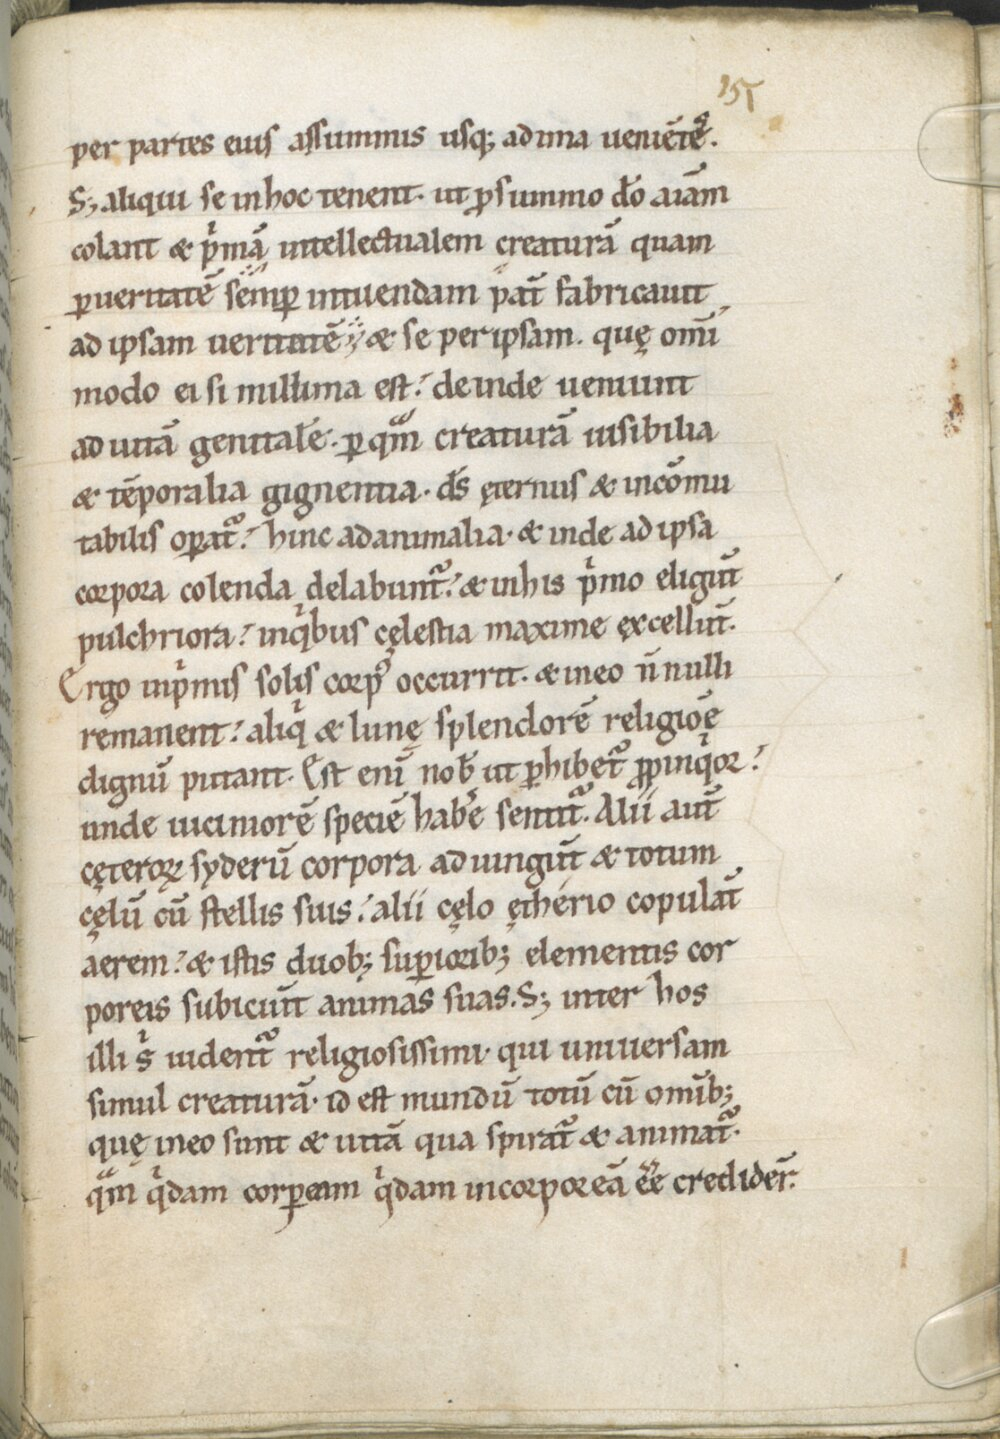 151
per partes eius assummis usq; adima ueniētes.
S; aliqui se inhoc tenent. ut ꝓsummo dō aīam
colant & pͥmā intellectualem creaturā quam
ꝑueritatē semꝑ intuendam pat̄ fabricauit
ad ipsam ueritatē & se peripsam. quę omī
modo ei simillima est. deinde ueniunt
ad uitā genitalē. ꝑ qͣm creaturā uisibilia
& tēporalia gignentia. ds̄ ęternus & incōmu
tabilis oꝑat᷑. hinc adanimalia. & inde ad ipsa
corpora colenda delabunt᷑. & inhis pͥmo eligūt
pulchriora. inqͥbus cęlestia maxime excellūt.
Ergo inpͥmis solis corpꝰ occurrit. & ineo n̄nulli
remanent. aliqͥ & lunę splendorē religiōe
dignū putant. Est enī nob̄ ut ꝑhibet᷑ ꝓpinqͥor.
unde uiciniorē speciē habe͛ sentit᷑. Alii aut̄
cęteroꝝ syderū corpora adiungūt & totum
cęlū cū stellis suis. alii cęlo ętherio copulāt
aerem. & istis duob; suꝑiorib; elementis cor
poreis subiciūt animas suas. S; inter hos
illi sͥ uident᷑ religiosissimi. qui uniuersam
simul creaturā. id est mundū totū cū omīb;
quę ineo sunt & uitā qua spirat᷑ & animat᷑.
qͣm qͥdam corpeam qͥdam incorporeā eē credider̄.